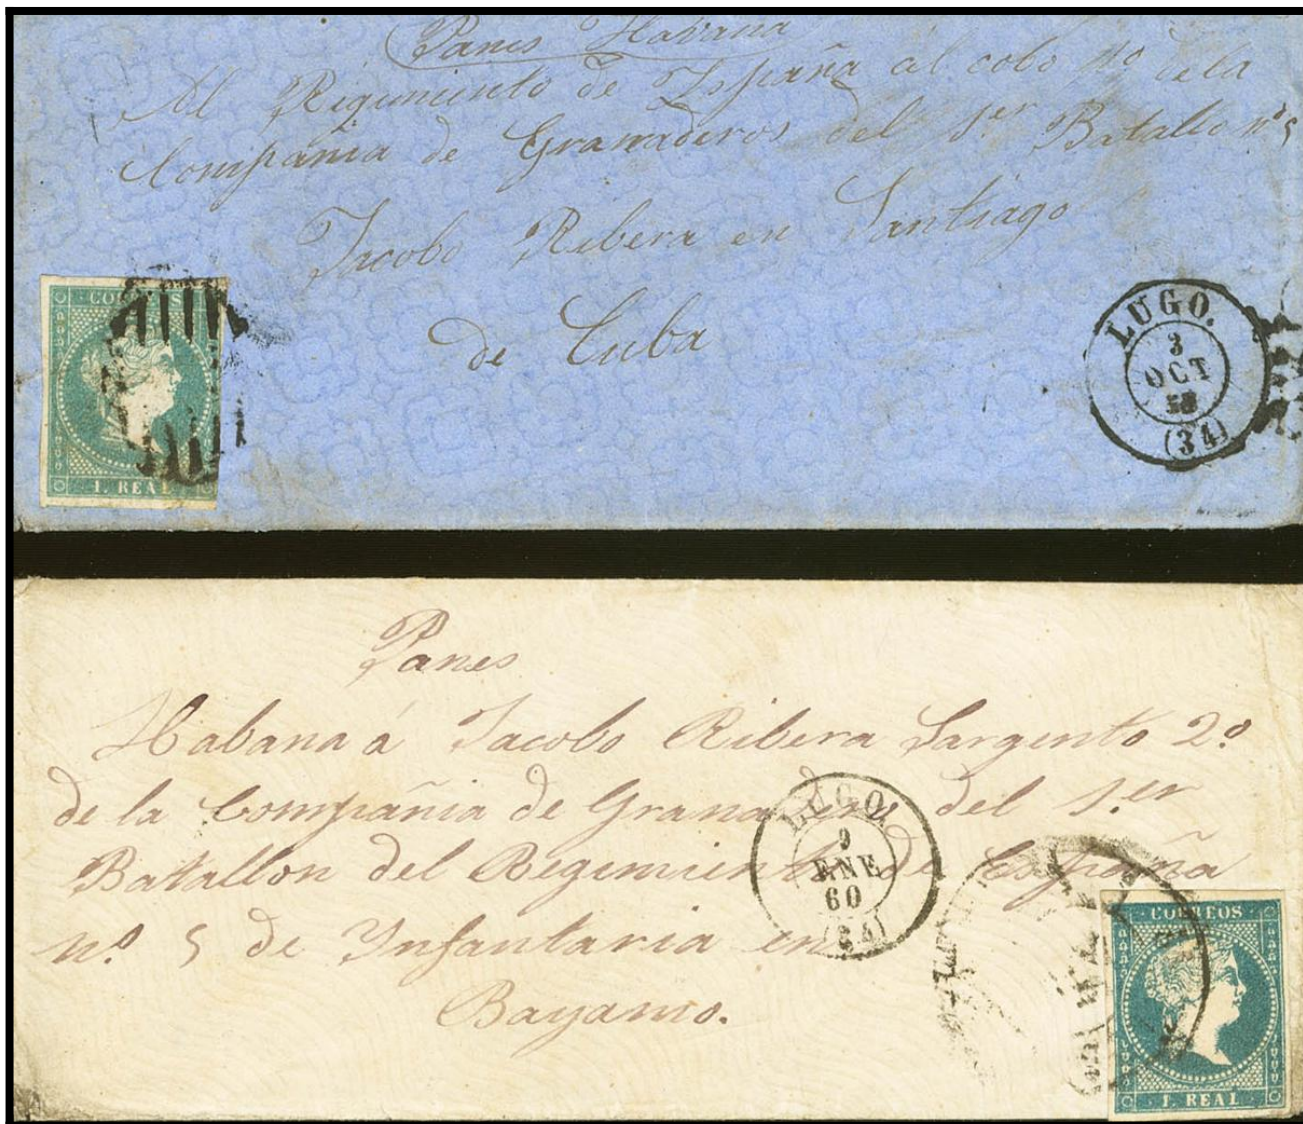 Panes Habana
Al Rigimiento de España al cobo 1º de la
Compánia de Granaderos del 1er Batallo nº 5
Jacobo Ribera en Santiago
de Cuba
CORREOS
1. REAL
LUGO.
3
OCT
58
(34)
Panes
Habana á Jacobo Ribera Sargento 2º
de la Compañia de Granaderos del 1er
Batallon del Regimiento de España
nº 5 de Ynfantaria en
Bayamo.
LUGO.
9
ENE
60
(34)
CORREOS
1. REAL